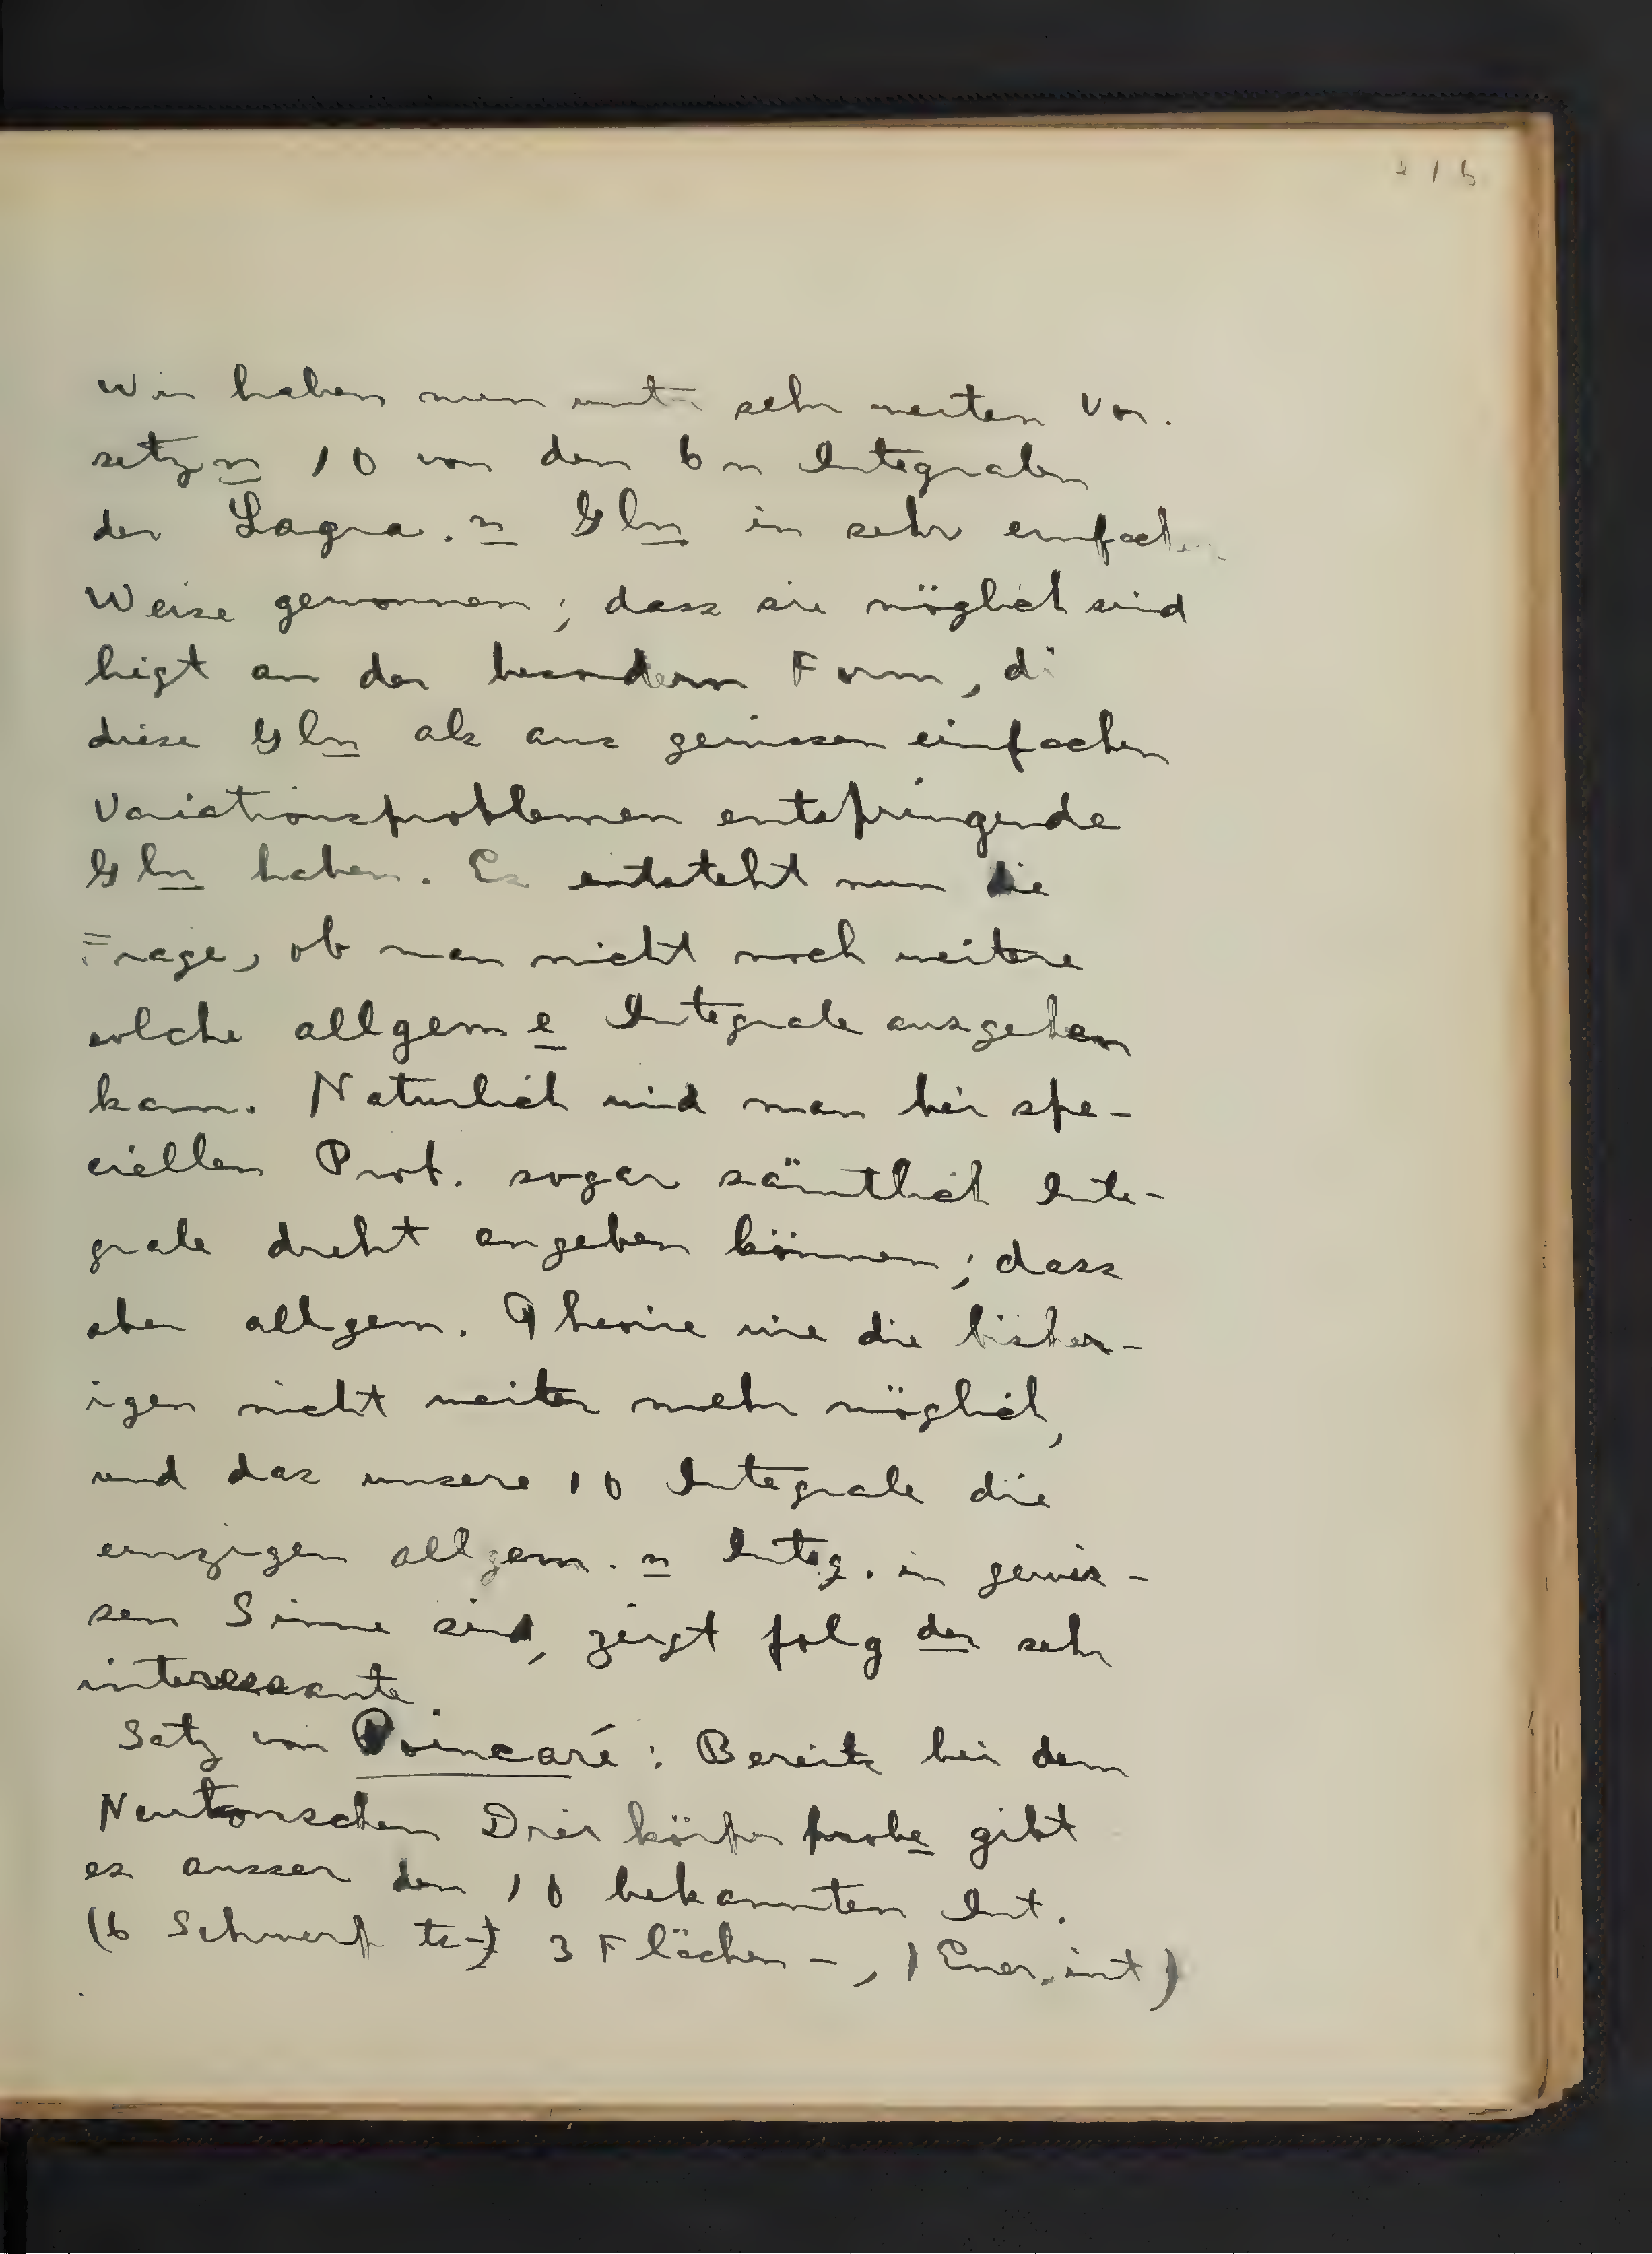 216
Wir haben nun unter sehr weiten Vor.
setzn 10 von den 6n Integralen
der Lagra.n Gln in sehr einfach
Weise gewonnen; dass sie möglich sind
liegt an der besondern Form, di
diese Gln als aus gewissen einfachen
Variationsproblemen entspringende
Gln haben. Es entsteht nun die
Frage, ob man nicht noch weitere
solche allgeme Integrale ausgeben
kann. Naturlich wird man bei spe-
ciellen Prob. sogar sämtlich Inte-
grale direkt angeben können; dass
aber allgem. Theorie wie die bisher-
igen nicht weiter mehr möglich,
und das unsere 10 Integrale die
einzigen allgem.n Integ. in gewis-
sen Sinne sind, zeigt folgder sehr
interessante
Satz von Poincaré: Bereits bei dem
Newtonschen Dreikörperprobe gibt
es ausser den 10 bekannten Int.
(6 Schwerpts-) 3 Flächen-, 1 Ener.int)